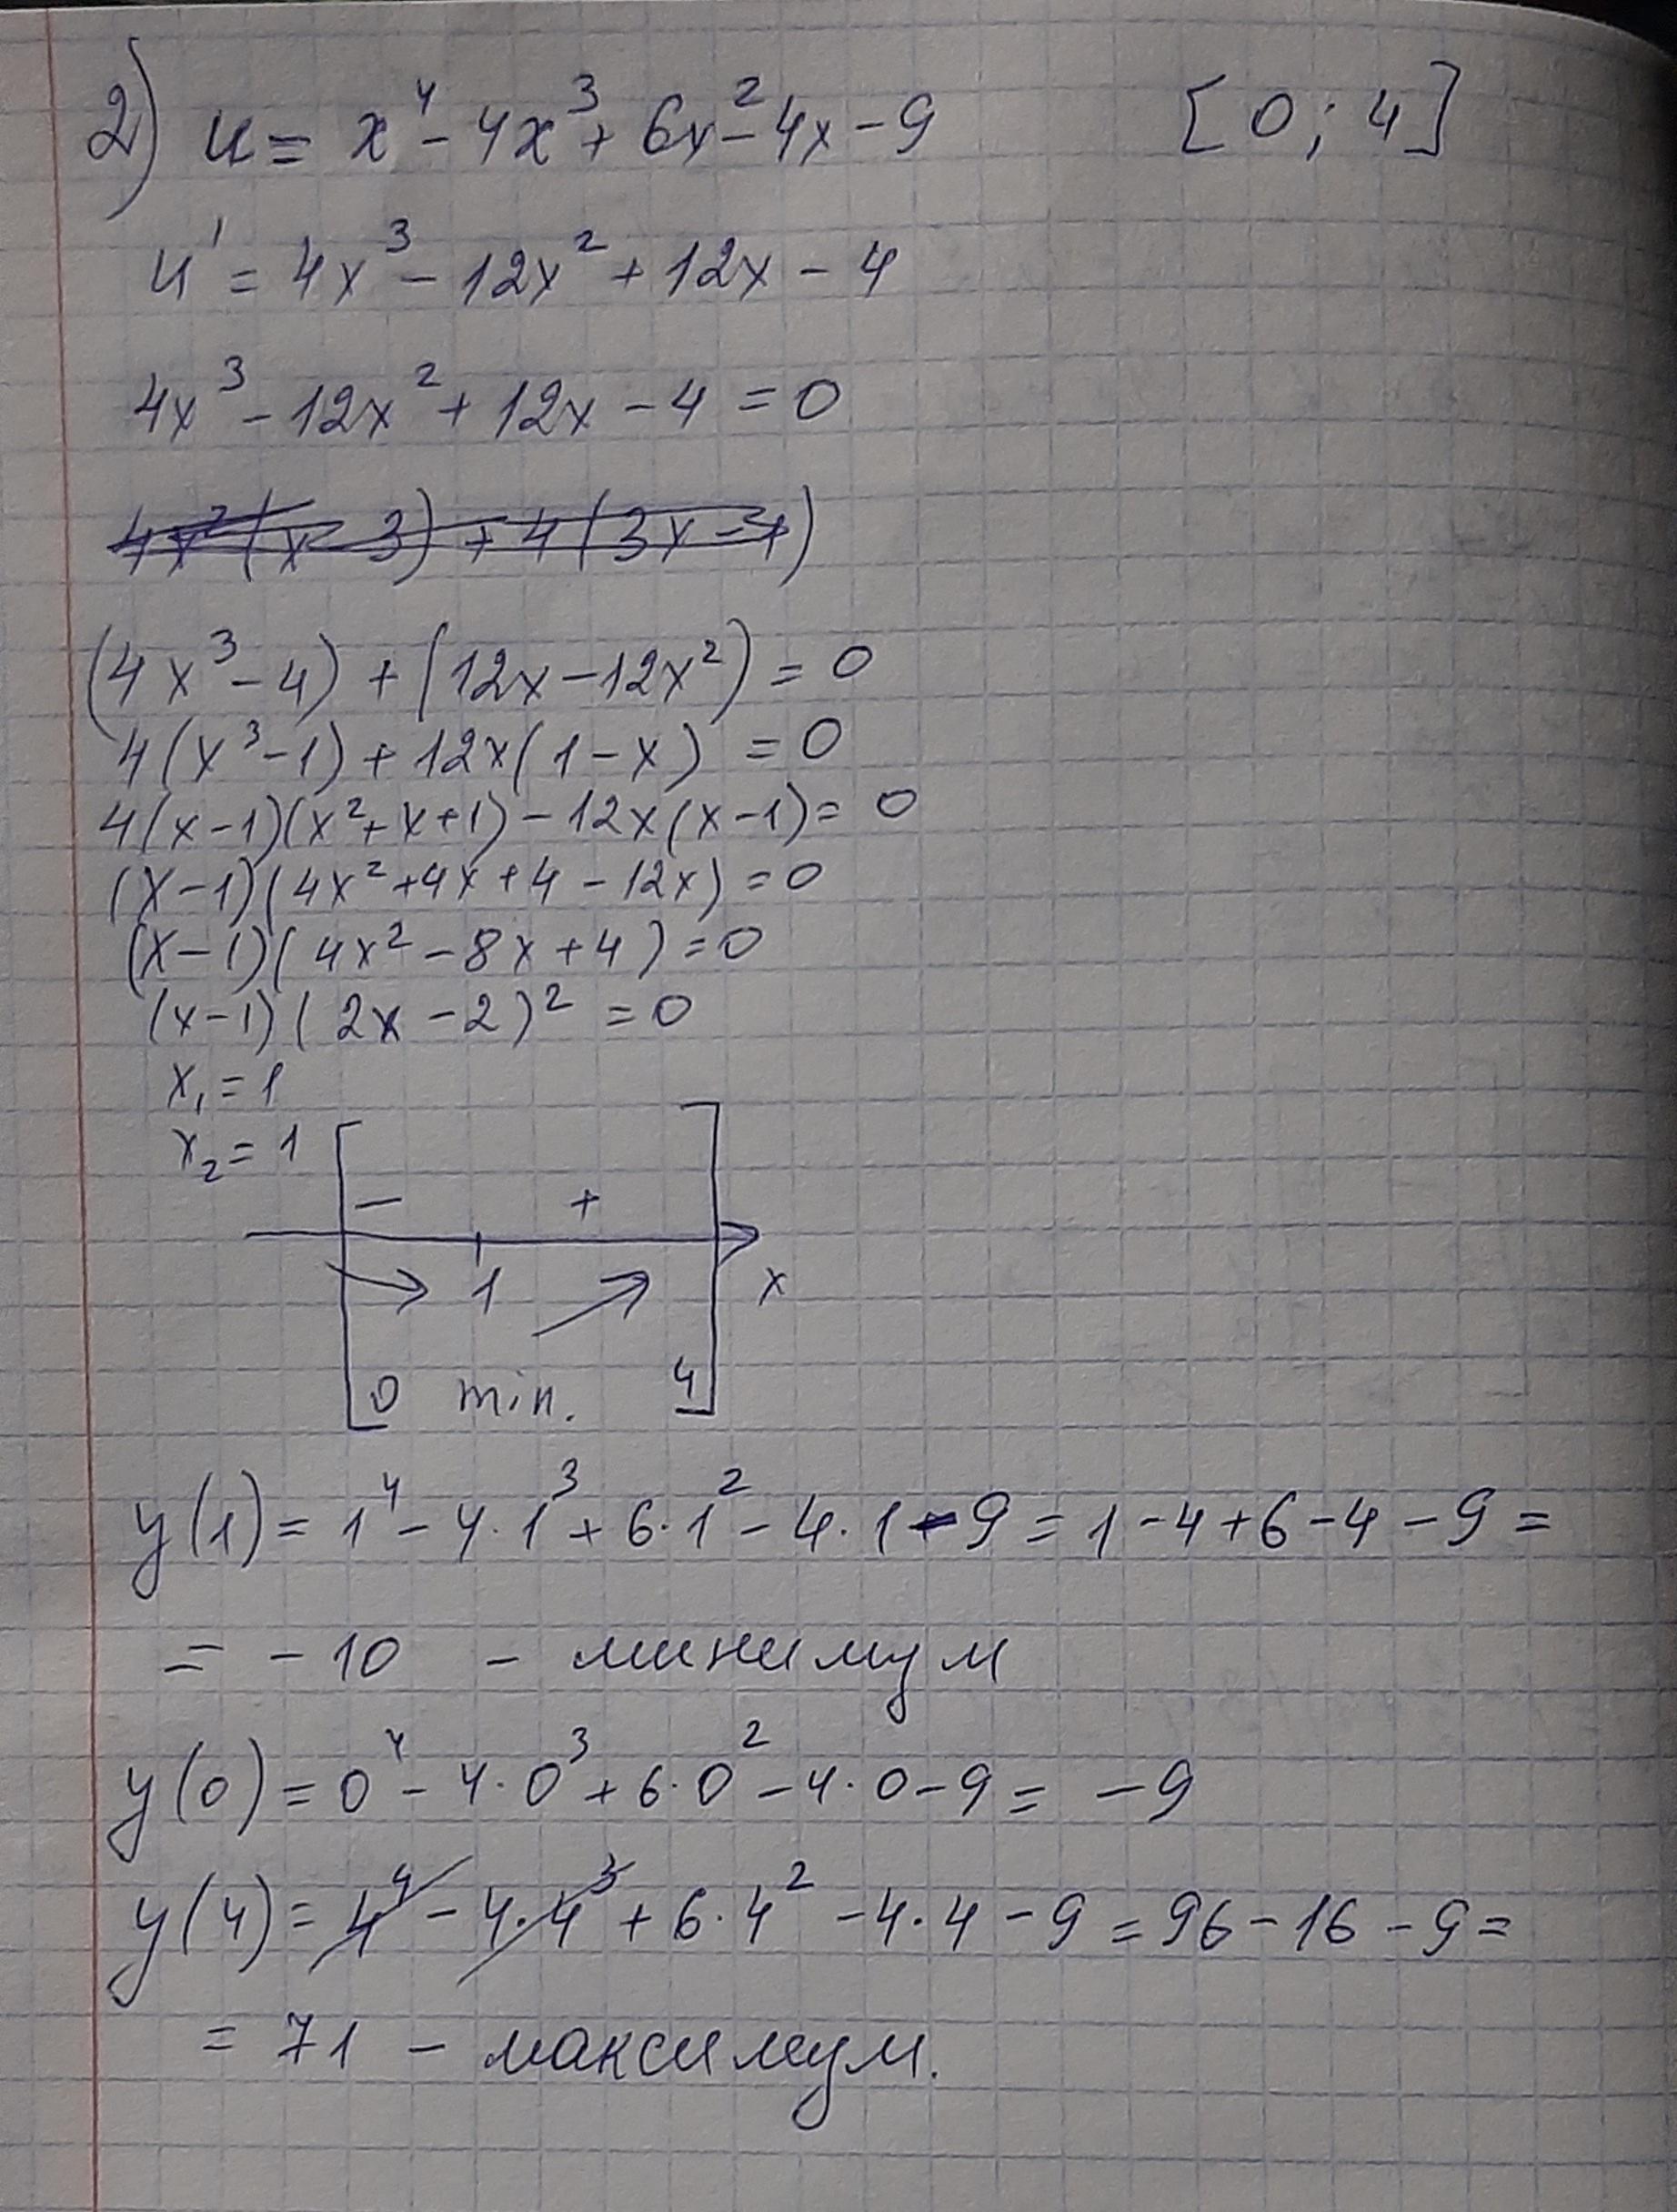 2) u = x⁴ - 4x³ + 6x² - 4x - 9 [0; 4]
u' = 4x³ - 12x² + 12x - 4
4x³ - 12x² + 12x - 4 = 0
4x²(x - 3) + 4(3x - 1)
(4x³ - 4) + (12x - 12x²) = 0
4(x³ - 1) + 12x(1 - x) = 0
4(x - 1)(x² + x + 1) - 12x(x - 1) = 0
(x - 1)(4x² + 4x + 4 - 12x) = 0
(x - 1)(4x² - 8x + 4) = 0
(x - 1)(2x - 2)² = 0
x₁ = 1
x₂ = 1
- +
1 x
0 min. 4
y(1) = 1⁴ - 4·1³ + 6·1² - 4·1 - 9 = 1 - 4 + 6 - 4 - 9 =
= - 10 - минимум
y(0) = 0⁴ - 4·0³ + 6·0² - 4·0 - 9 = - 9
y(4) = 4⁴ - 4·4³ + 6·4² - 4·4 - 9 = 96 - 16 - 9 =
= 71 - максимум.